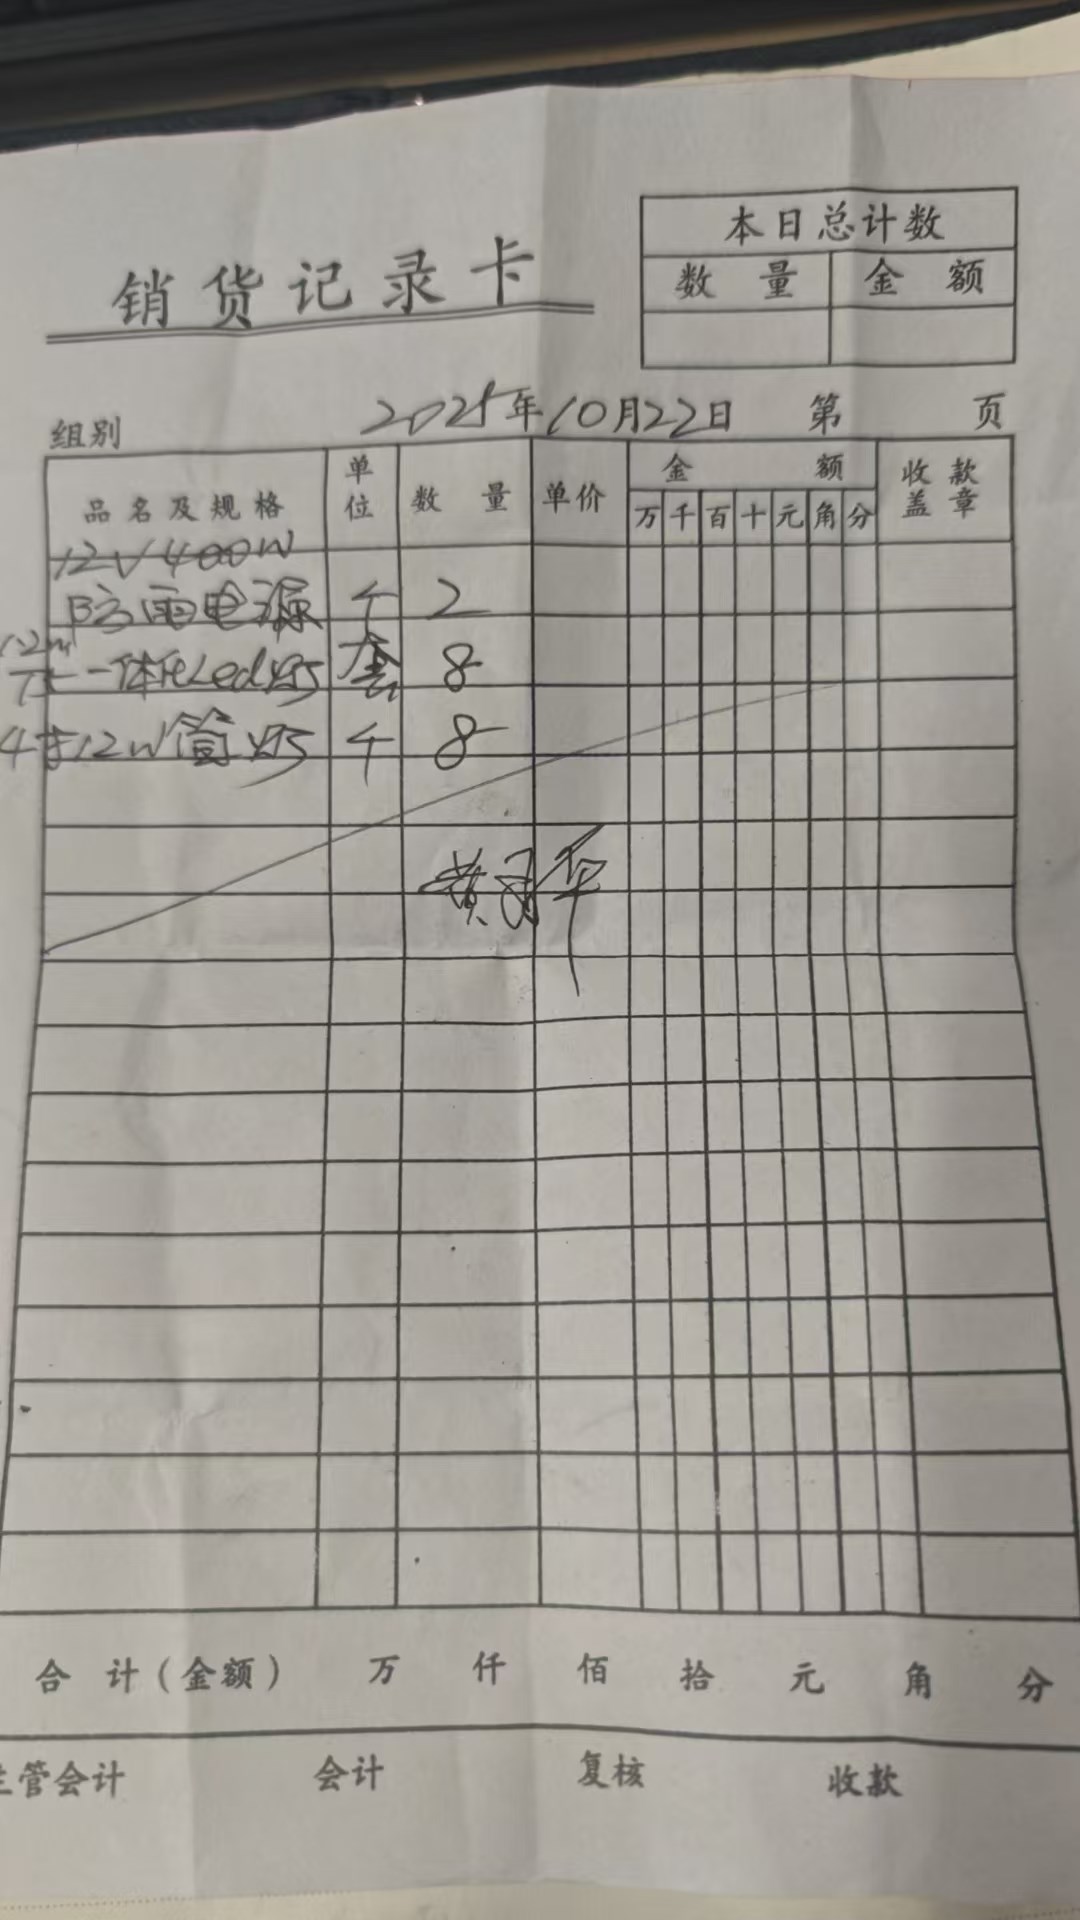 本日总计数
数量 金额
销货记录卡
组别 2025年10月22日 第 页
品名及规格 单位 数量 单价 金额 收款盖章
万 千 百 十 元 角 分
12V400W
防雨电源 个 2
1.2m
T5一体化Led灯 套 8
4寸12W筒灯 个 8
黄 华
合计(金额) 万 仟 佰 拾 元 角 分
主管会计 会计 复核 收款